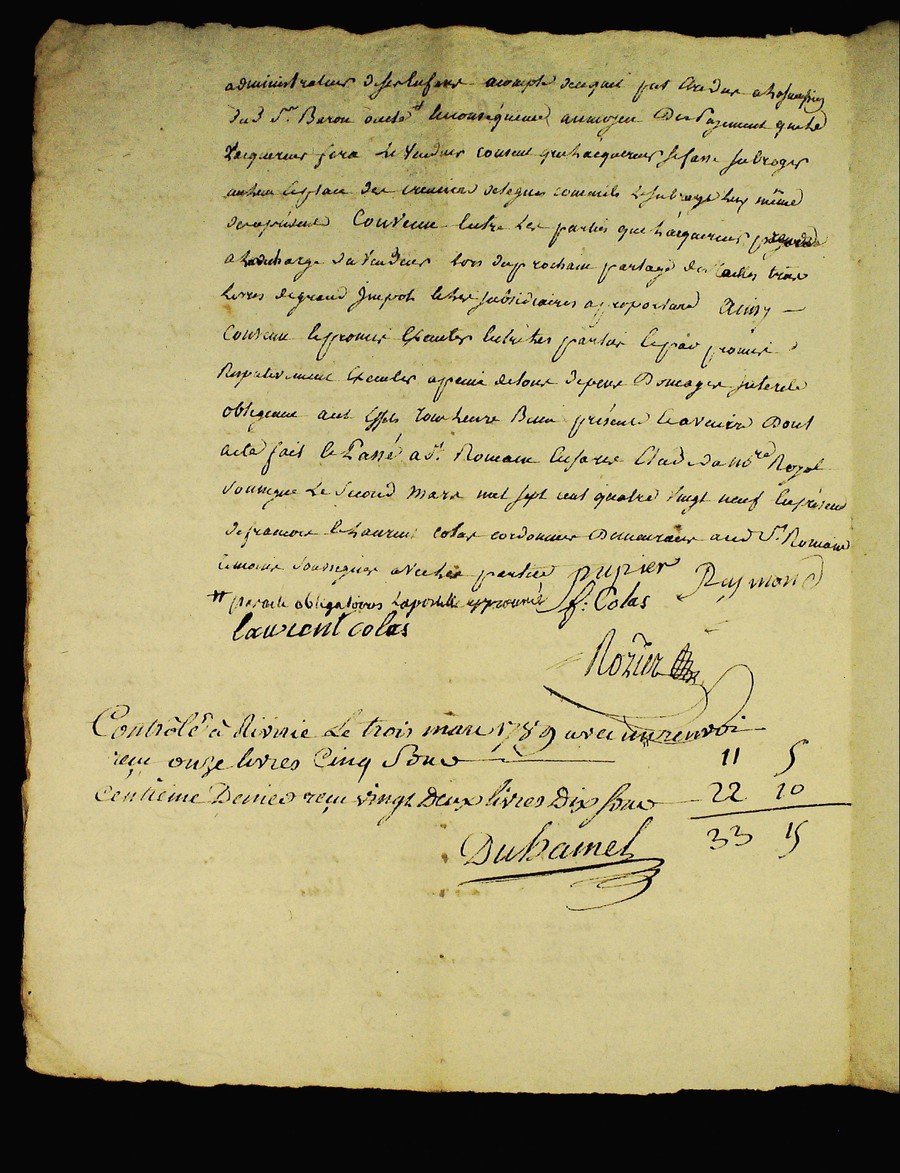 administrateur de ses enfans acompte de ce qui put etre du a
dud Sr. Baron aucte # en consequence, au moyen Des Payement que led
L'acquereur fera Le Vendeur consent que Lacquereur se fasse subroger
au lieu et place des creanciers delegués comme il Le subroge luy même
des a présent Convenu Entre Les parties que L'acquereur prendra
a la decharge du Vendeur Lors du prochain partage des tailles trois
Livres de grand Impot et les subsidiaires a proportion Ainsy
Convenu et promis Executer Entre les parties et par promis
Respectivement Executer a peine de tous depens Domages Interets
obligeant aux Effets tous leurs Biens présents et avenir Dont
acte fait et Passé a St. Romain En jarez Etude du nore Royal
soussigné Le Second Mars mil sept cent quatre Vingt neuf En présence
de francois et Laurent Colas cordonnier Demeurant aud St. Romain
temoins soussignés avec les parties pupier Raymond
# par acte obligatoires L'apostille approuvée f: Colas
laurent colas
Rozier
Contrôlé à Riverie Le trois mars 1789 avec un renvoi
reçu onze livres Cinq Sous 11 5
Centième Denier reçu vingt Deux livres Dix sous 22 10
33 15
Duhamel